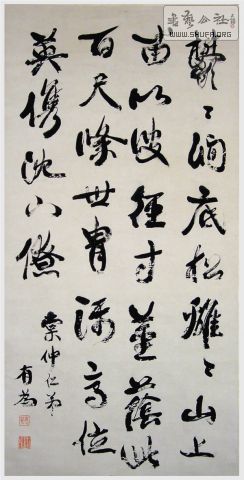 鬱〻澗底松離〻山上
苗以彼徑寸莖蔭此
百尺條世胄躡高位
英儁沈下僚
棠仲仁弟
有為
書藝公社
WWW.SHUFA.ORG